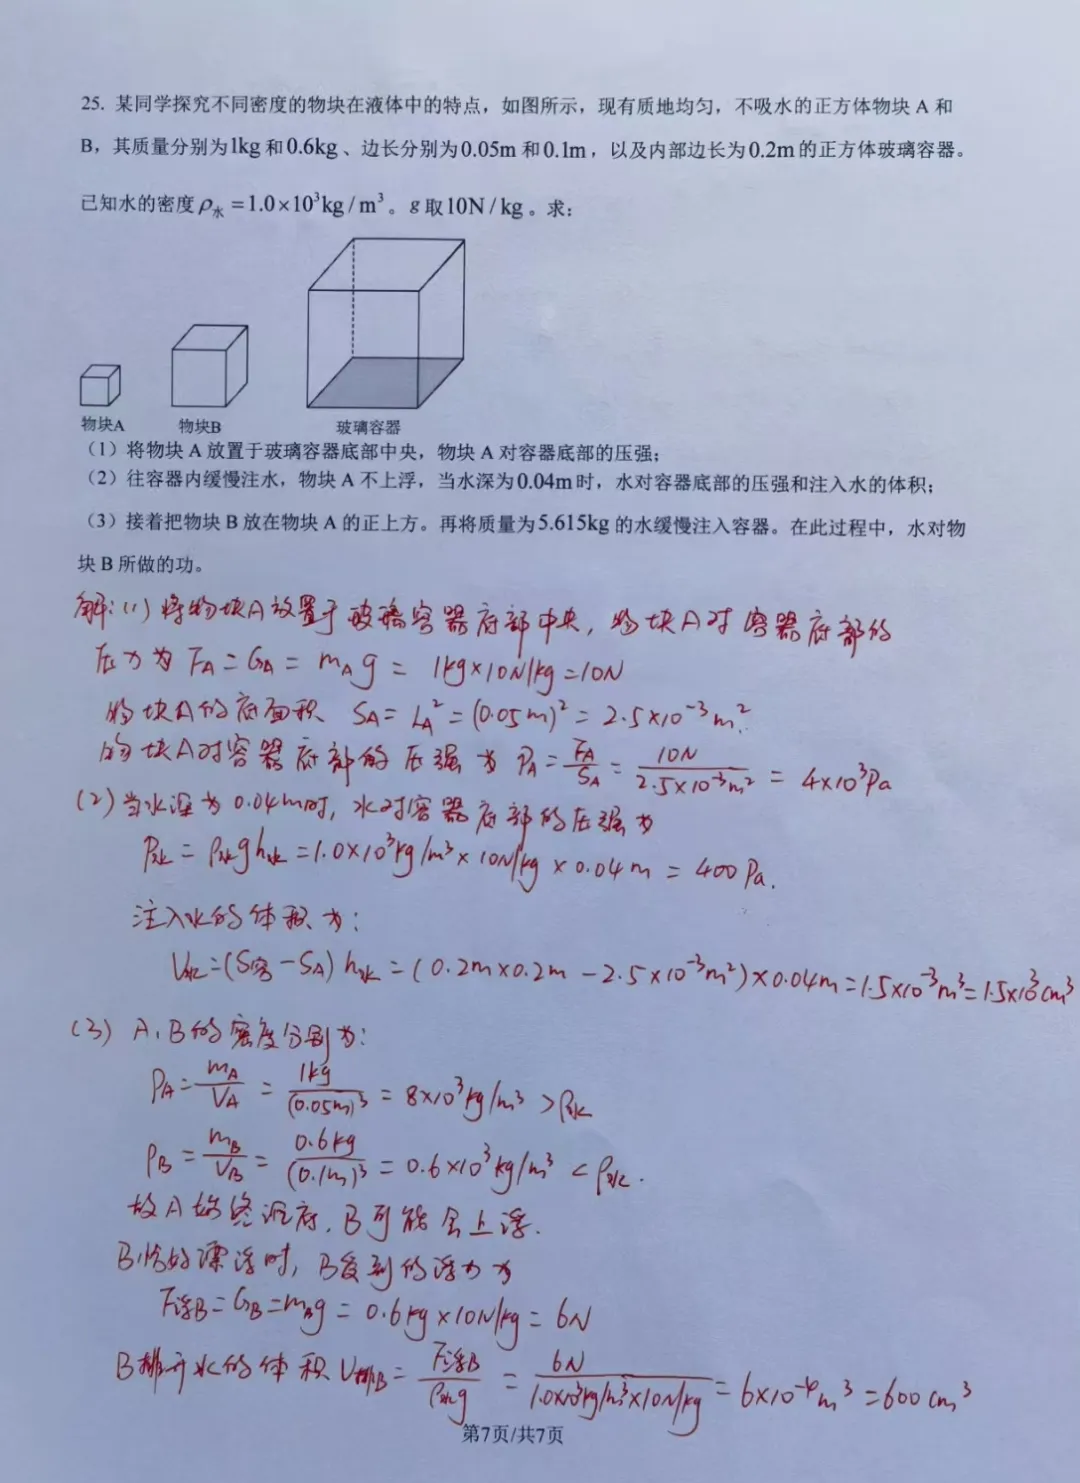 25. 某同学探究不同密度的物块在液体中的特点，如图所示，现有质地均匀，不吸水的正方体物块 A 和
B，其质量分别为1kg 和0.6kg、边长分别为0.05m 和0.1m，以及内部边长为0.2m的正方体玻璃容器。
已知水的密度 ρ水 =1.0×10³kg/m³。g 取10N/kg。求：
物块A 物块B 玻璃容器
（1）将物块 A 放置于玻璃容器底部中央，物块 A 对容器底部的压强；
（2）往容器内缓慢注水，物块 A 不上浮，当水深为0.04m时，水对容器底部的压强和注入水的体积；
（3）接着把物块 B 放在物块 A 的正上方。再将质量为5.615kg 的水缓慢注入容器。在此过程中，水对物
块 B 所做的功。
解：(1) 将物块A放置于玻璃容器底部中央，物块A对容器底部的
压力为 FA=GA=mAg = 1kg×10N/kg=10N
物块A的底面积 SA=LA²=(0.05m)²=2.5×10⁻³m².
物块A对容器底部的压强为 PA=FA/SA=10N/2.5×10⁻³m²=4×10³Pa
(2) 当水深为0.04m时，水对容器底部的压强为
P水=ρ水gh水=1.0×10³kg/m³×10N/kg×0.04m=400Pa.
注入水的体积为：
V水=(S容-SA)h水=(0.2m×0.2m-2.5×10⁻³m²)×0.04m=1.5×10⁻³m³=1.5×10³cm³
(3) A、B的密度分别为：
ρA=mA/VA=1kg/(0.05m)³=8×10³kg/m³>ρ水
ρB=mB/VB=0.6kg/(0.1m)³=0.6×10³kg/m³<ρ水.
故A始终沉底，B可能会上浮.
B恰好漂浮时，B受到的浮力为
F浮B=GB=mBg=0.6kg×10N/kg=6N
B排开水的体积V排B=F浮B/ρ水g=6N/1.0×10³kg/m³×10N/kg=6×10⁻⁴m³=600cm³
第7页/共7页